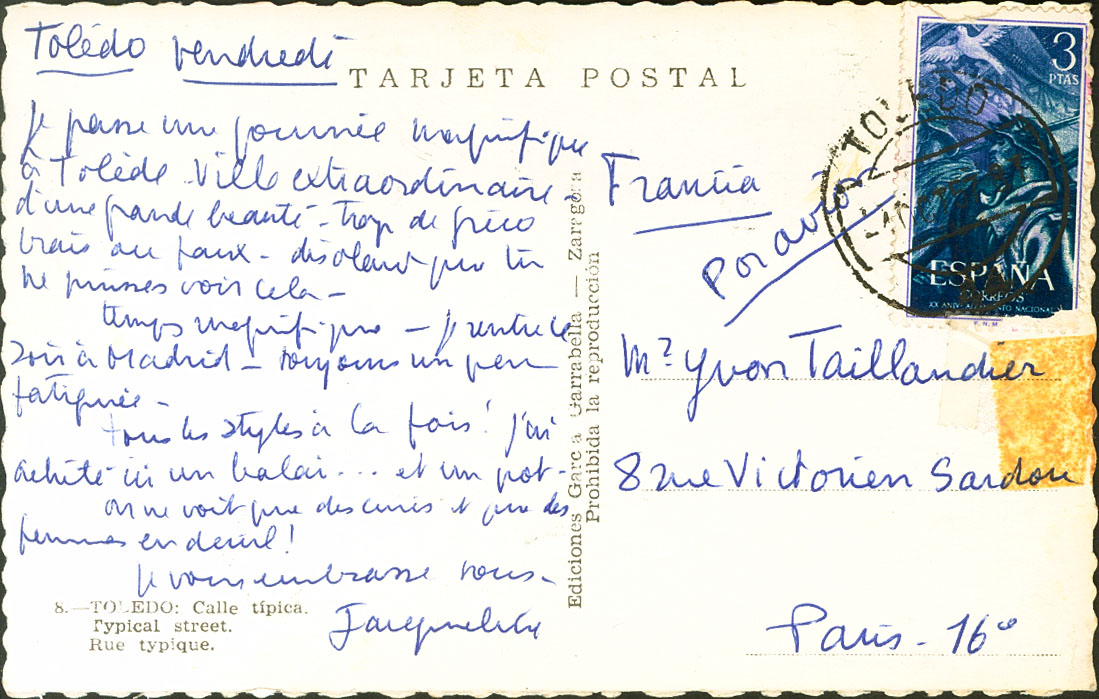 Tolédo vendredi
TARJETA POSTAL
Je passe une journée magnifique
à Tolède Ville extraordinaire -
d'une grande beauté - trop de gréco
vrais ou faux - désolant que tu
ne puisses voir cela -
temps magnifique - je rentre ce
soir à Madrid - toujours un peu
fatiguée -
tous les styles à la fois ! j'ai
acheté ici un balai ... et un pot -
on ne voit que des curés et que des
femmes en deuil !
Je vous embrasse tous -
Jacqueline
8.—TOLEDO: Calle típica.
Typical street.
Rue typique.
Ediciones Garcia Garrabella — Zaragoza
Prohibida la reproducción
Francia
Por avion
Mr Yvon Taillandier
8 rue Victorien Sardou
Paris - 16e
3
PTAS
ESPAÑA
CORREOS
TOLEDO